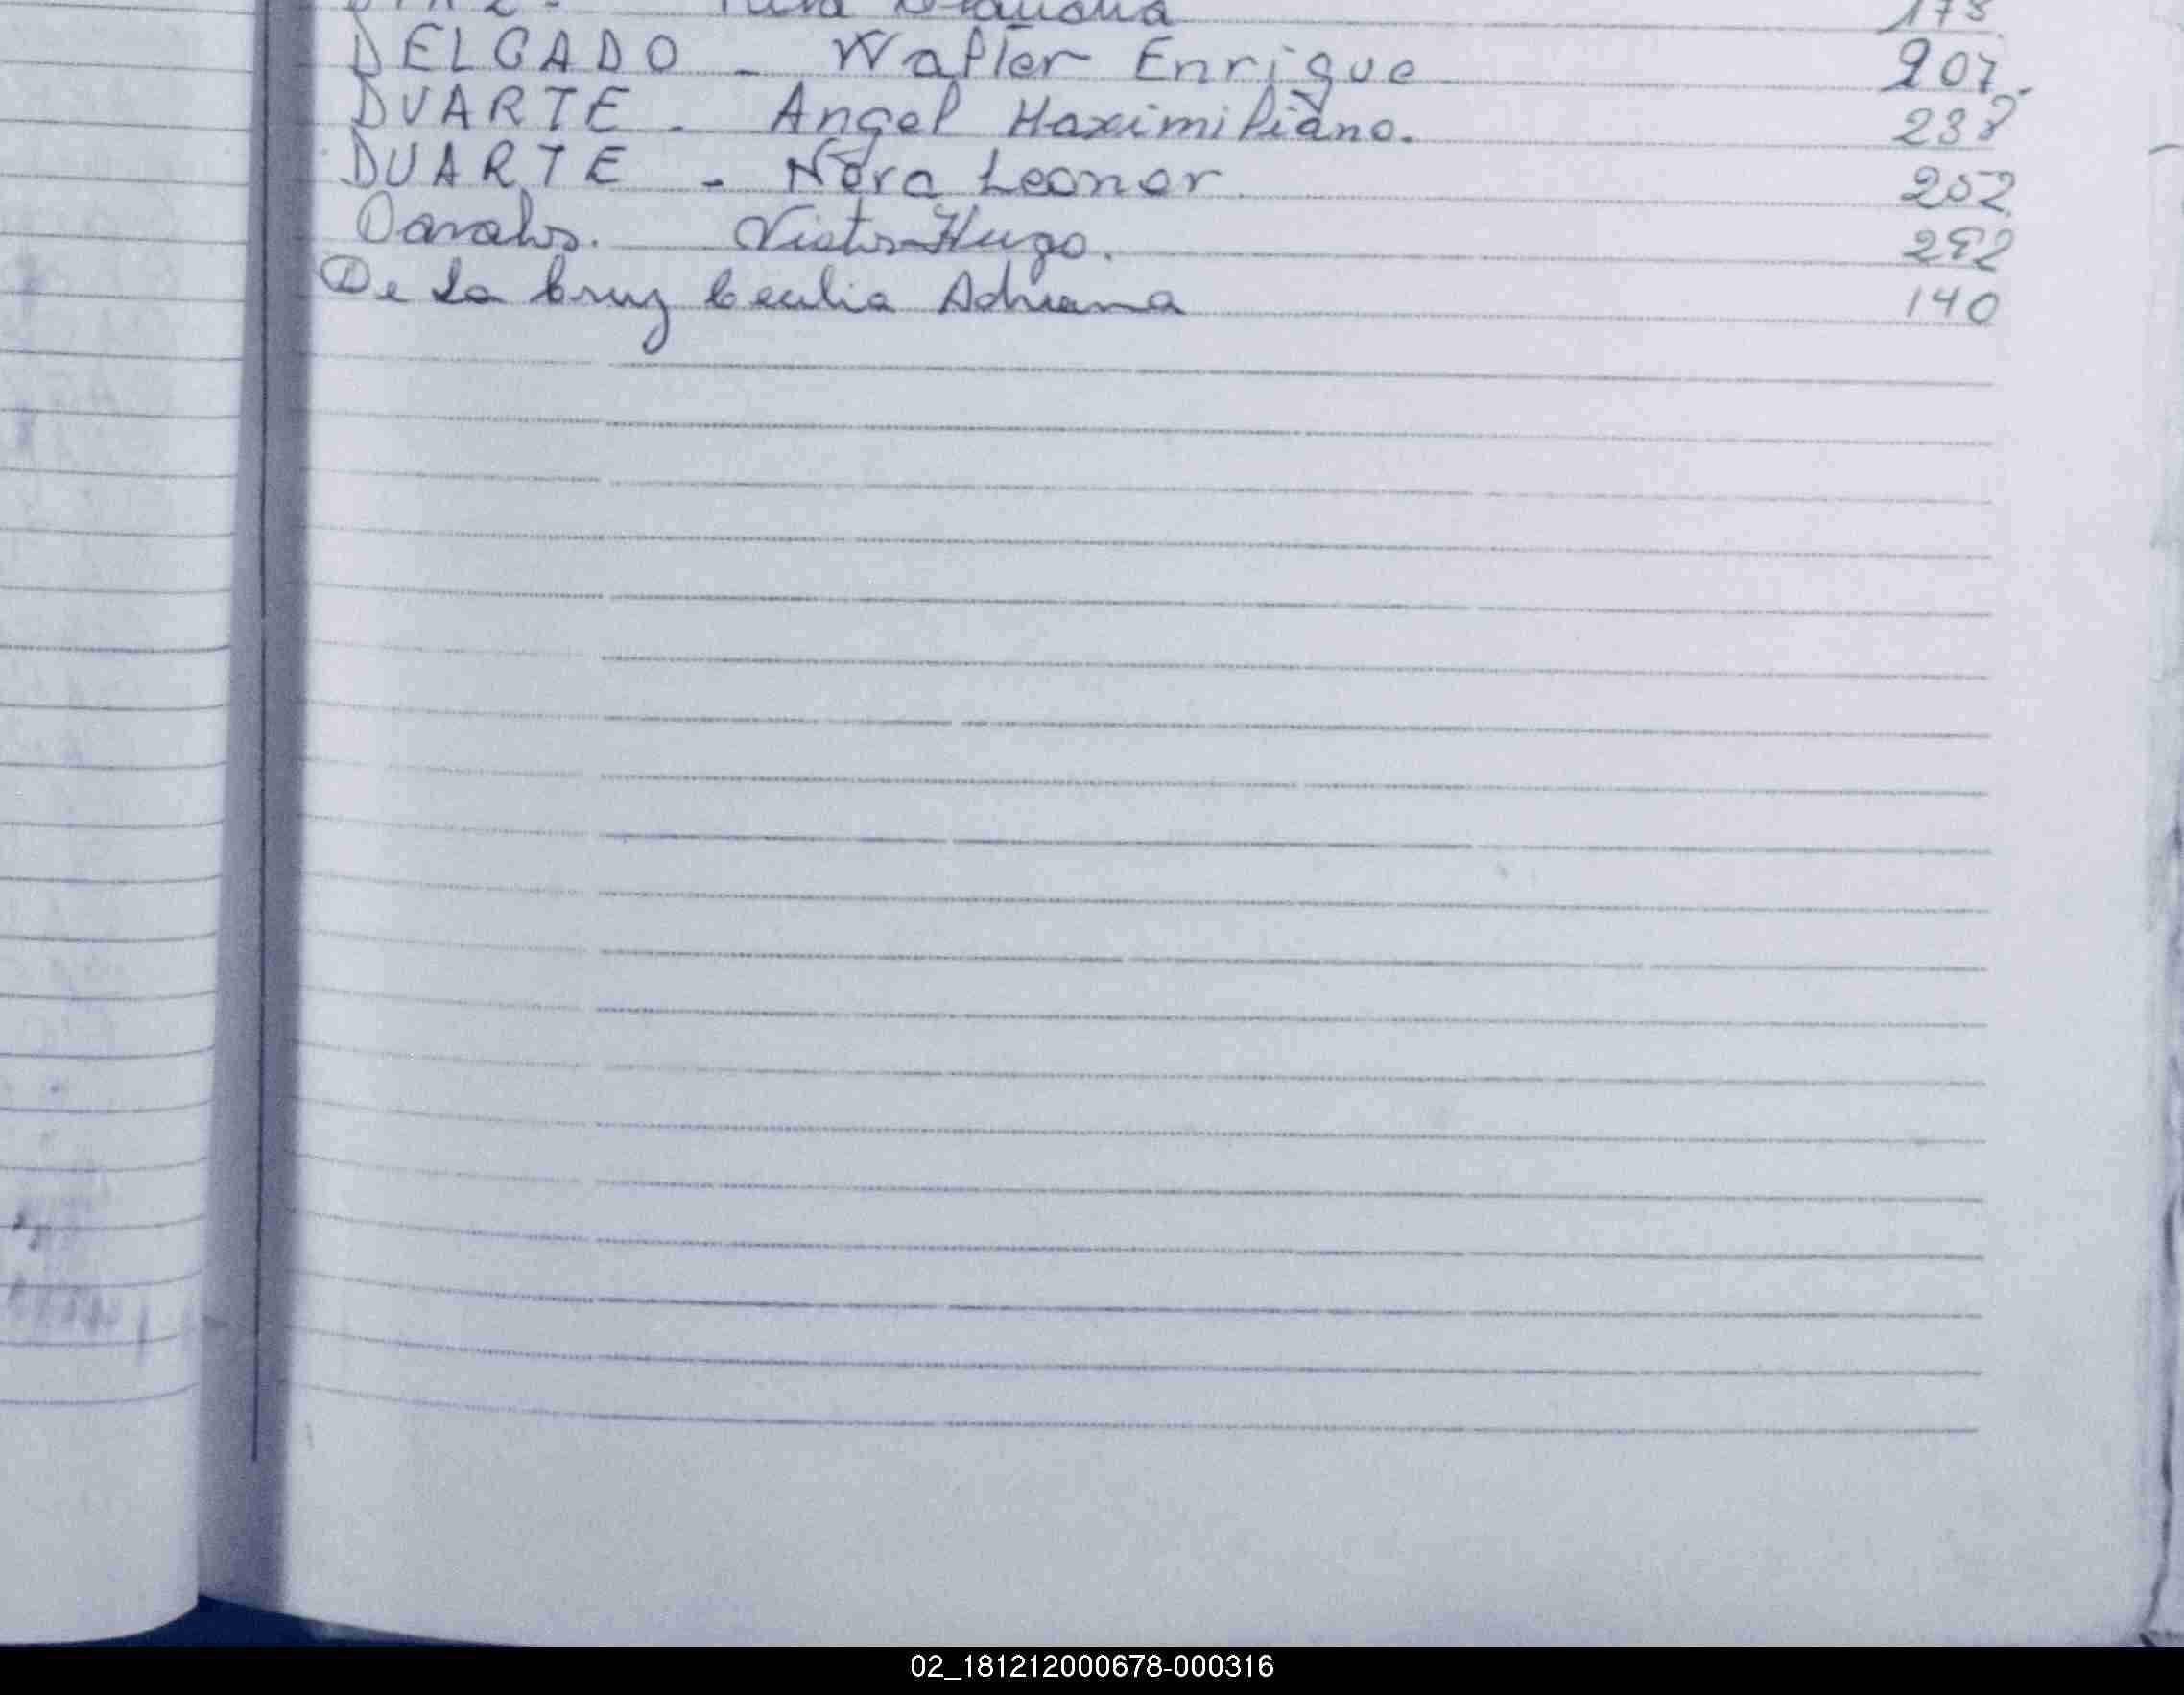 DELGADO - Walter Enrique 207.
DUARTE - Angel Maximiliano. 238
DUARTE - Nora Leonor 252
Victor Hugo. 292
De La Cruz Cecilia Adriana 140
02_181212000678-000316